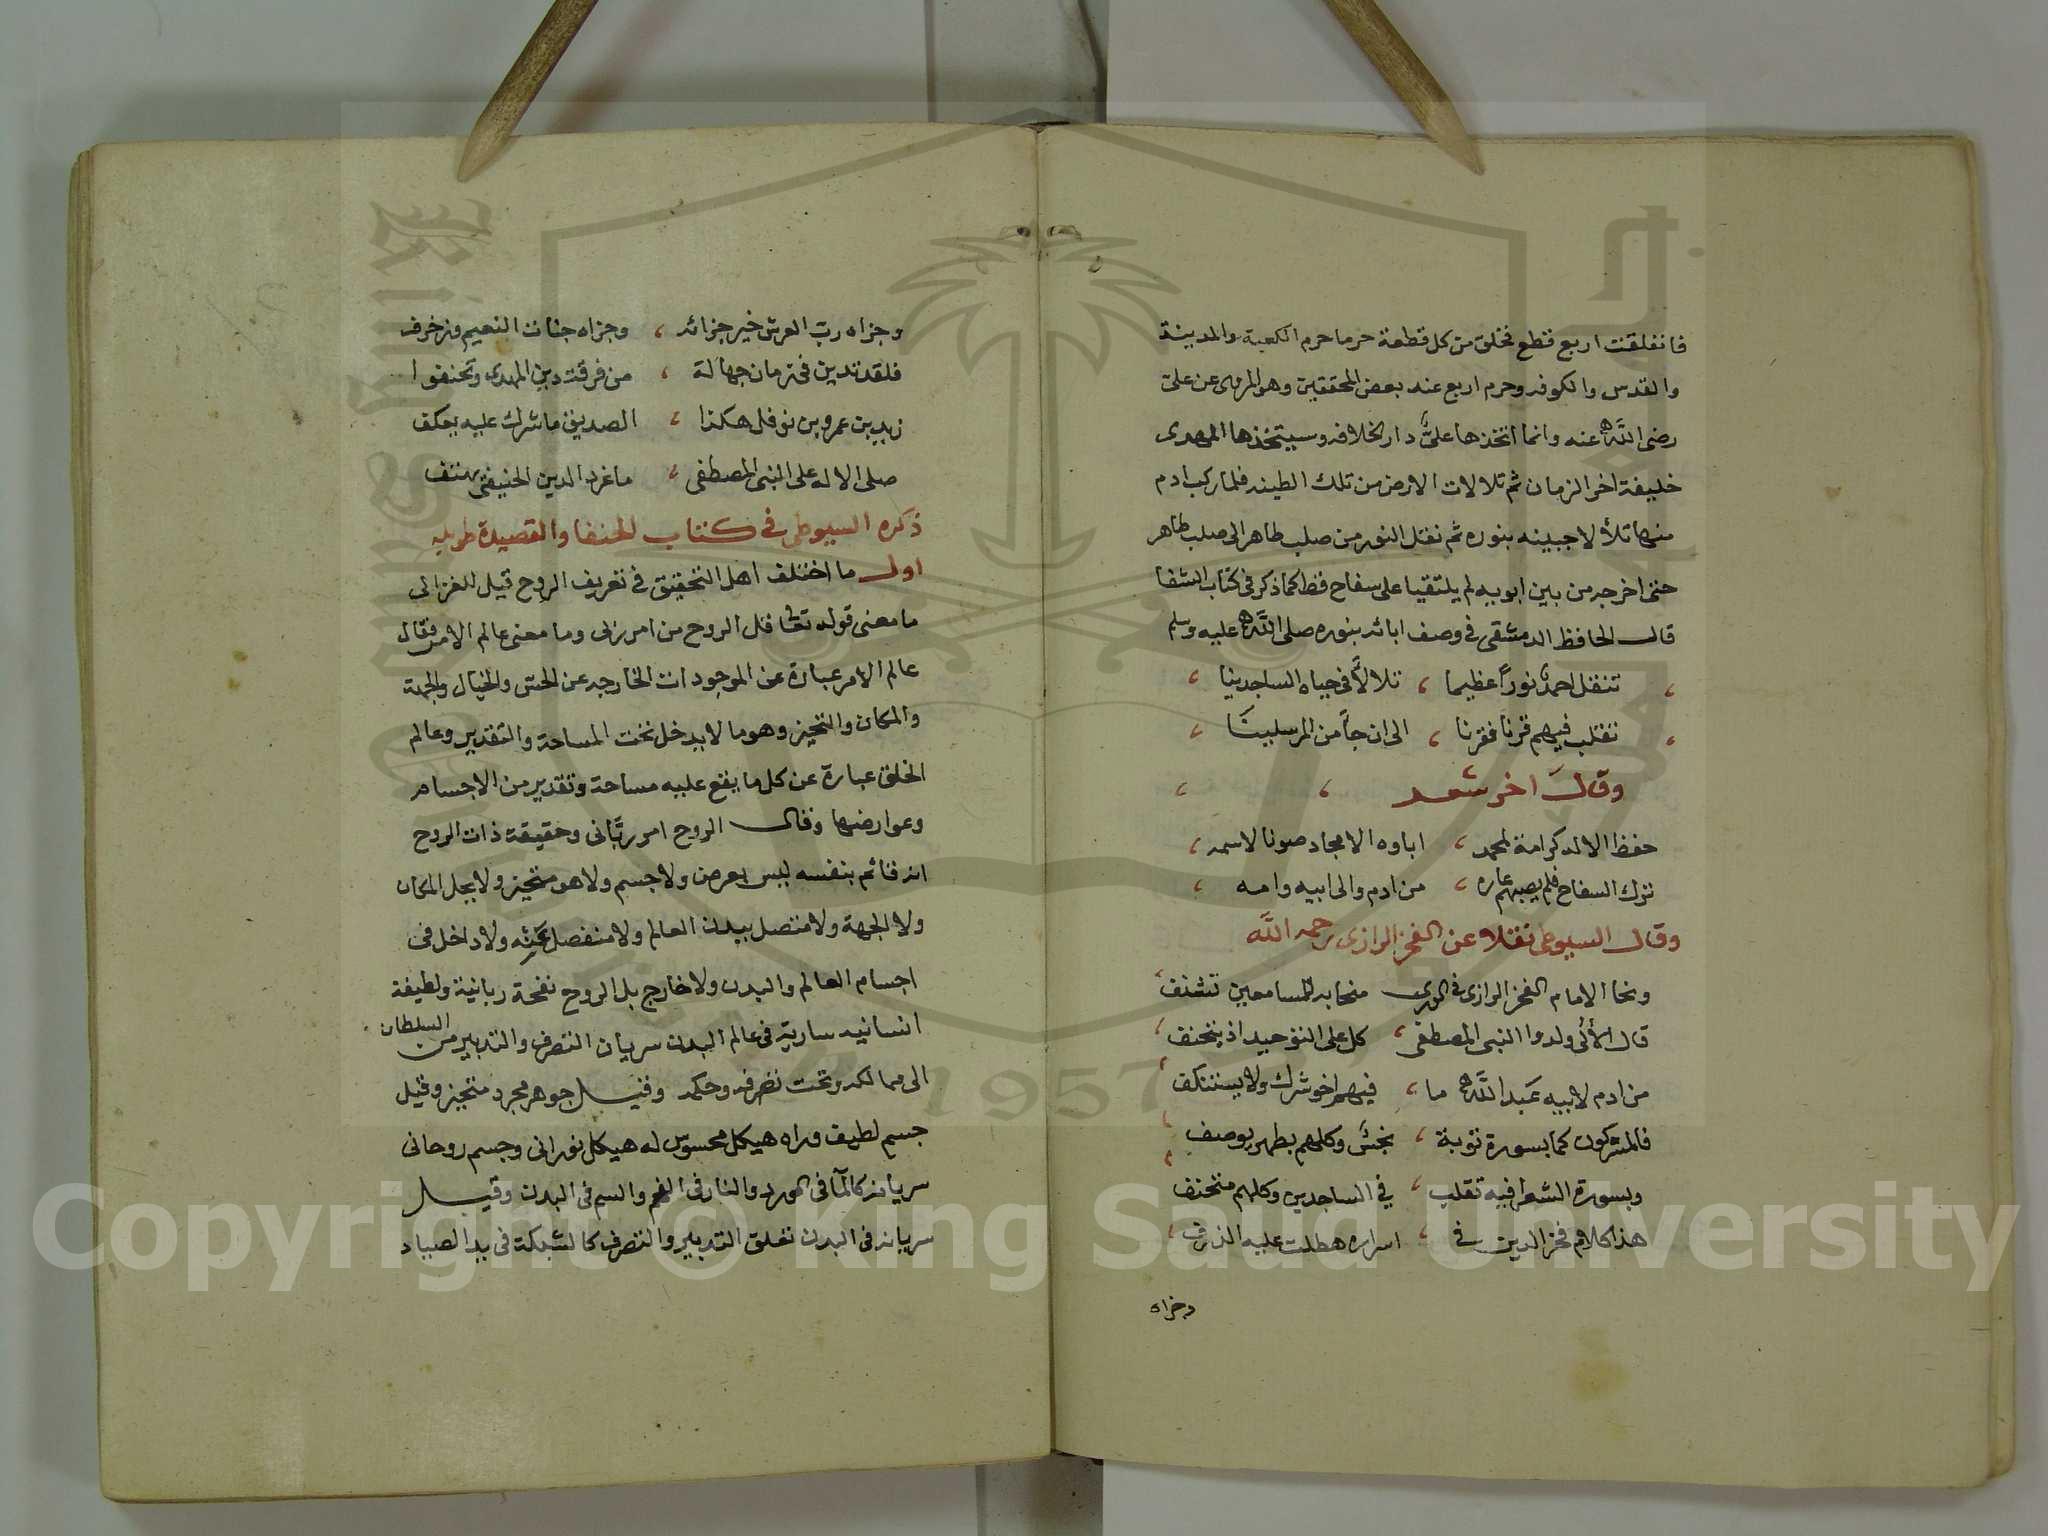 فانفلقت اربع قطع فخلق من كل قطعة حرما حرم الكعبة والمدينة
والقدس والكوفه وحرم اربع عند بعض المحققين وهو المروى عن على
رضى الله عنه وانما اتخذها على دار الخلافه وسيتخذها المهدى
خليفة اخر الزمان ثم تلالات الارض من تلك الطينه فلما ركب ادم
منها تلألا جبينه بنوره ثم نقل النور من صلب طاهر الى صلب طاهر
حتى اخرجه من بين ابويه لم يلتقيا على سفاح قط كما ذكر فى كتاب الشفا
قال الحافظ الدمشقى فى وصف ابائه بنوره صلى الله عليه وسلم
تنقل احمد نورا عظيما ، تلالأ فى جباه الساجدينا
تقلب فيهم قرنا فقرنا ، الى ان جا من المرسلينا
وقال اخر شعر
حفظ الاله كرامة لمحمد ، اباوه الامجاد صونا لاسمه
ترك السفاح فلم يصبهم عاره ، من ادم والى ابيه وامه
وقال السيوطى نقلا عن الفخر الرازى رحمه الله
ونحا الامام الفخر الرازى فى الورى منحا به للسامعين تشنف
قال الألى ولدوا النبى المصطفى ، كل على التوحيد اذ يتحنف
من ادم لابيه عبد الله ما ، فيهم اخو شرك ولا يستنكف
فالمشركون كما بسورة توبة ، نجس وكلهم بطهر يوصف
وبسورة الشعرا فيه تقلب ، فى الساجدين وكلهم متحنف
هذا كلام فخر الدين فى ، اسراره هطلت عليه الذرف
وجزاه
وجزاه رب العرش خير جزائه ، وجزاه جنات النعيم وزخرف
فلقد تدين فى زمان جهالة ، من فرقة دين الهدى وتحنفوا
زيد بن عمرو بن نوفل هكذا ، الصديق ما شرك عليه يعكف
صلى الاله على النبى المصطفى ، ما غرد الدين الحنيفى يهتف
ذكره السيوطى فى كتاب الحنفا والقصيدة طويله
اول ما اختلف اهل التحقيق فى تعريف الروح قيل للغزالى
ما معنى قوله تعا قل الروح من امر ربى وما معنى عالم الامر فقال
عالم الامر عبارة عن الموجودات الخارجه عن الحس والخيال والجهة
والمكان والتحيز وهو ما لا يدخل تحت المساحة والتقدير وعالم
الخلق عبارة عن كل ما يقع عليه مساحة وتقدير من الاجسام
وعوارضها وقال الروح امر ربانى وحقيقة ذات الروح
انه قائم بنفسه ليس بعرض ولا جسم ولا هو متحيز ولا يحل المكان
ولا الجهة ولا متصل ببدن العالم ولا منفصل عنه ولا داخل فى
اجسام العالم والبدن ولا خارج بل الروح نفحة ربانية ولطيفة
انسانيه سارية فى عالم البدن سريان التصرف والتدبير من السلطان
الى ممالكه وتحت تصرفه وحكمه وقيل جوهر مجرد متحيز وقيل
جسم لطيف وراه هيكل محسوس له هيكل نورانى وجسم روحانى
سريانه كالمآ فى الورد والنار فى الفحم والسم فى البدن وقيل
سريانه فى البدن تعلق التدبير والتصرف كالشبكة فى يد الصياد
Copyright © King Saud University
1957